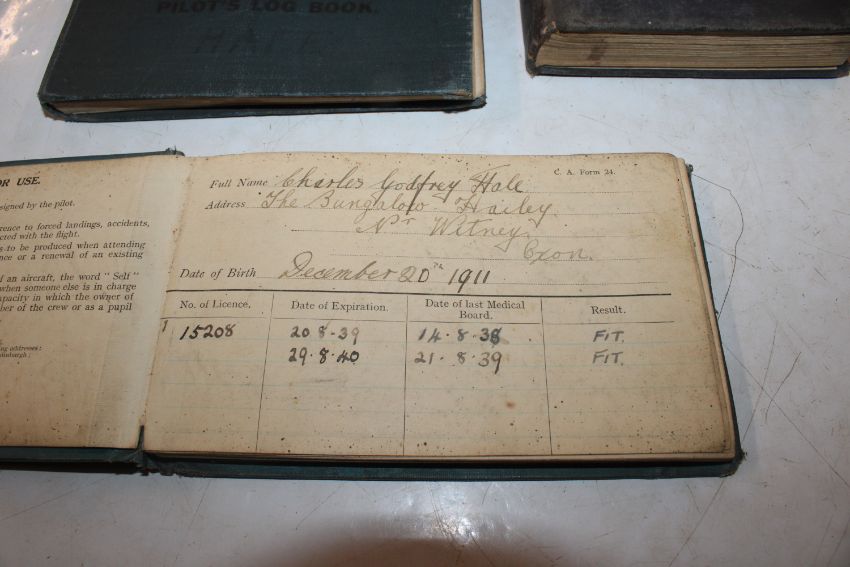 PILOT'S LOG BOOK.
HALE
OR USE.
signed by the pilot.
rence to forced landings, accidents,
cted with the flight.
s to be produced when attending
nce or a renewal of an existing
f an aircraft, the word "Self"
when someone else is in charge
apacity in which the owner of
ber of the crew or as a pupil
ng addresses:
dinburgh;
C. A. Form 24.
Full Name Charles Godfrey Hale
Address The Bungalow Hailey
Nr Witney
Oxon.
Date of Birth December 20th 1911
No. of Licence. Date of Expiration. Date of last Medical Board. Result.
15208 20 8-39 14-8-38 FIT.
29-8-40 21-8-39 FIT.